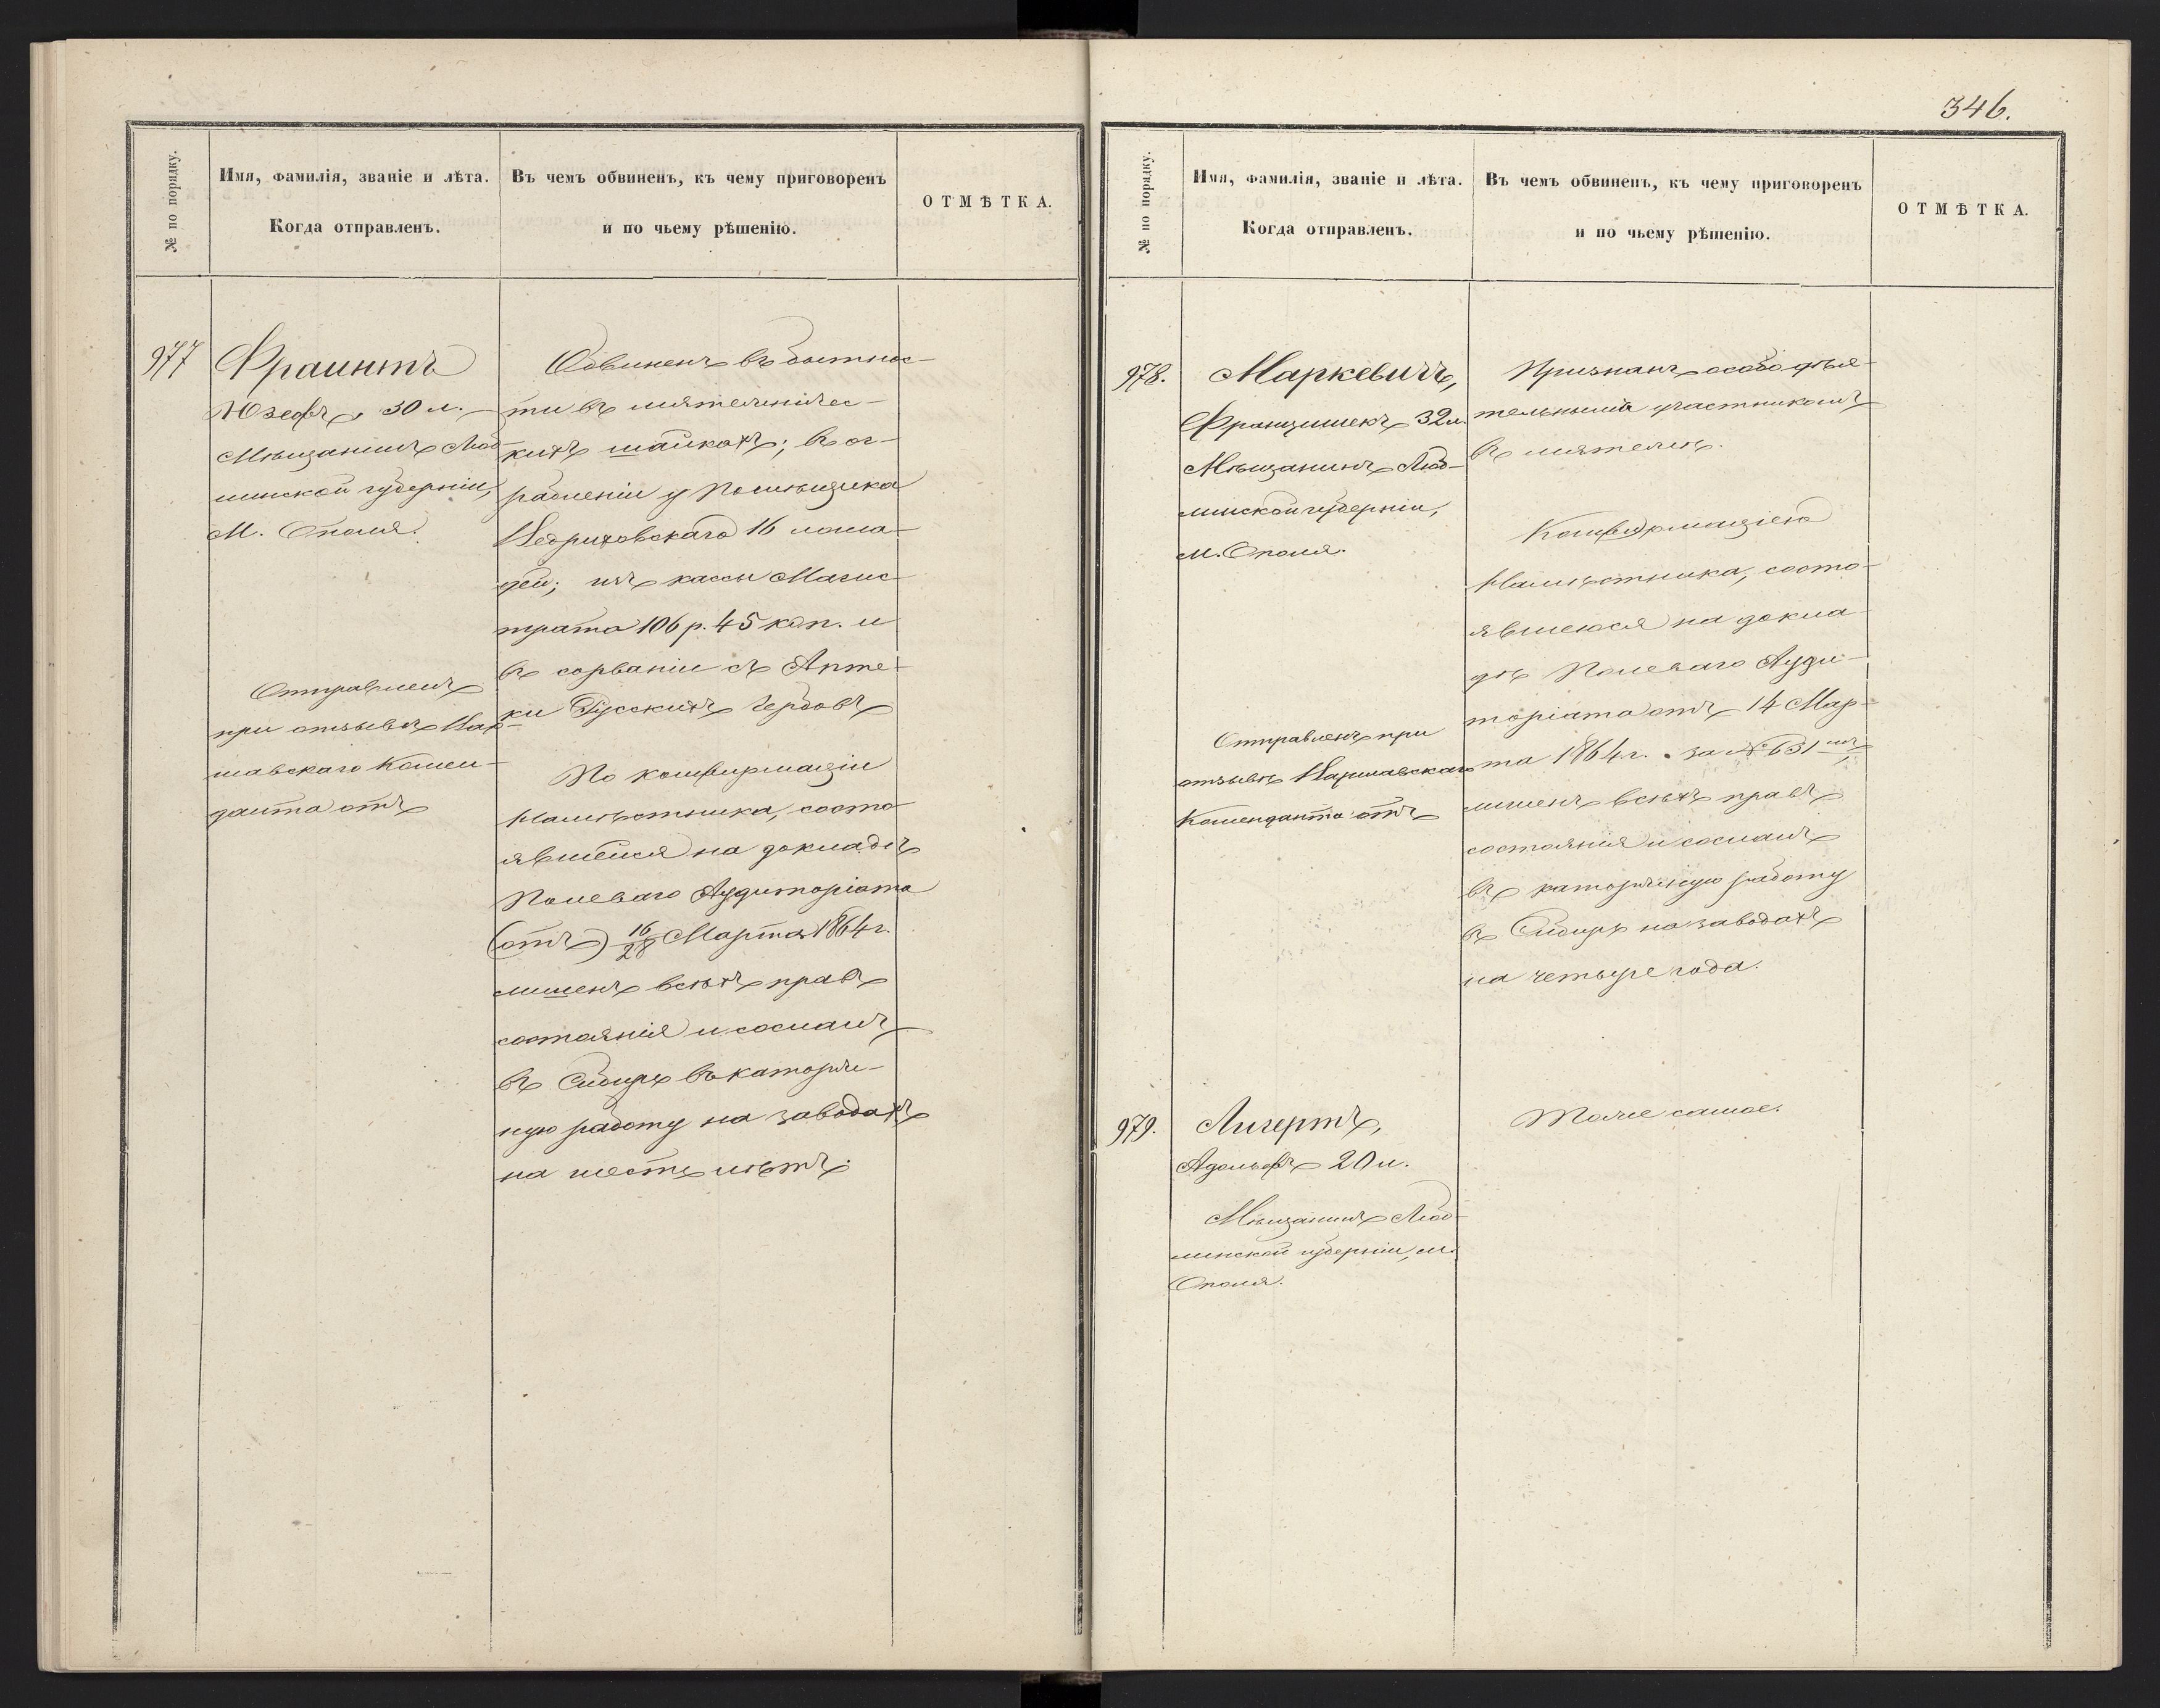 № по порядку.
Имя, фамилія, званіе и лѣта.
Когда отправленъ.
Въ чемъ обвиненъ, къ чему приговоренъ
и по чьему рѣшенію.
ОТМѢТКА.
977
Фраинтъ
Юзефъ, 30 л.
Мѣщанинъ Люб-
линской губерніи,
М. Ополя.
Отправленъ
при отзывѣ Вар-
шавскаго Комен-
данта отъ
Обвиненъ въ бытнос-
ти въ мятежничес-
кихъ шайкахъ; въ ог-
рабленіи у Помѣщика
16 лоша-
дей; изъ кассы Магис-
трата 106 р. 45 коп. и
въ сорваніи съ Апте-
ки Русскихъ Гербовъ
По конфирмаціи
Намѣстника, состо-
явшейся на докладѣ
Полеваго Аудиторіата
(отъ) 16/28 Марта 1864 г.
лишенъ всѣхъ правъ
состоянія и сосланъ
въ Сибирь въ каторж-
ную работу на заводахъ
на шесть лѣтъ.
346.
№ по порядку.
Имя, фамилія, званіе и лѣта.
Когда отправленъ.
Въ чемъ обвиненъ, къ чему приговоренъ
и по чьему рѣшенію.
ОТМѢТКА.
978.
Маркевичъ,
Францишекъ 32 л.
Мѣщанинъ Люб-
линской губерніи,
м. Ополя.
Отправленъ при
отзывѣ Варшавскаго
Коменданта отъ
Признанъ особо дѣя-
тельнымъ участникомъ
въ мятежѣ.
Конфирмаціею
Намѣстника, состо-
явшеюся на докла-
дѣ Полеваго Ауди-
торіата отъ 14 Мар-
та 1864 г. за № 631 мъ,
лишенъ всѣхъ правъ
состоянія и сосланъ
въ каторжную работу
въ Сибирь на заводахъ
на четыре года.
979.
Лигертъ,
Адольфъ 20 л.
Мѣщанинъ Люб-
линской губерніи, м.
Ополя.
Тоже самое.